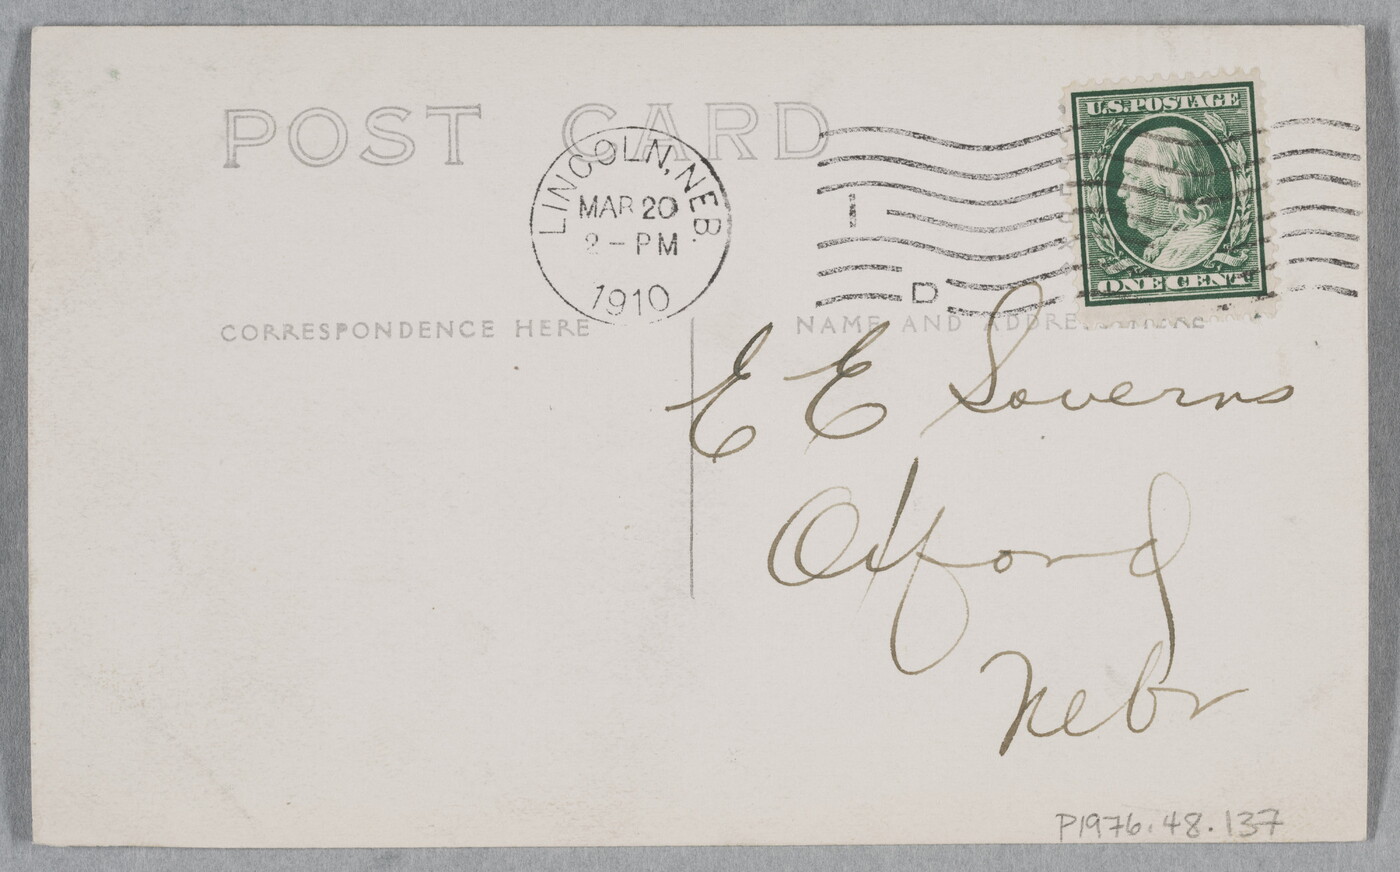 POST CARD
LINCOLN, NEB.
MAR 20
2 - PM
1910
I
D
U.S. POSTAGE
ONE CENT
CORRESPONDENCE HERE
NAME AND ADDRESS HERE
E E Soverns
Oxford
Nebr
P1976.48.137